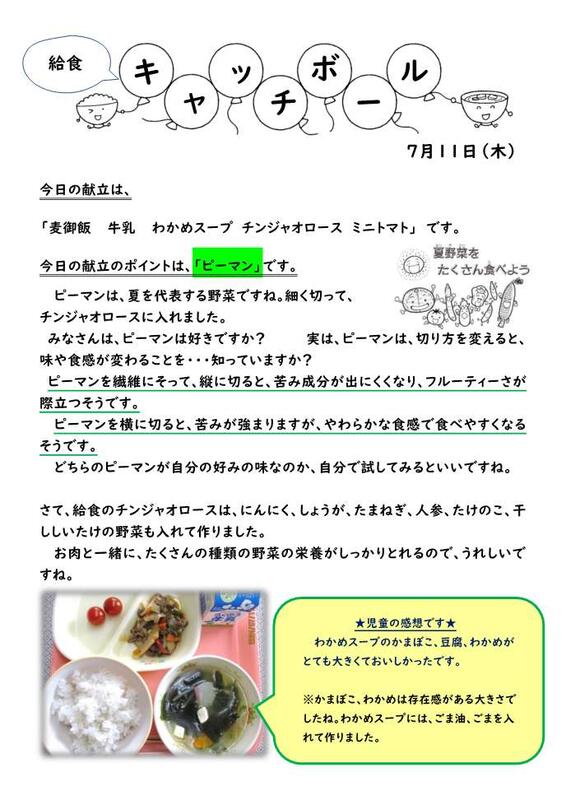 給食
キャッチボール
7月11日(木)
今日の献立は、
「麦御飯　牛乳　わかめスープ　チンジャオロース　ミニトマト」　です。
今日の献立のポイントは、「ピーマン」です。
夏野菜を
たくさん食べよう
ピーマンは、夏を代表する野菜ですね。細く切って、
チンジャオロースに入れました。
みなさんは、ピーマンは好きですか？　実は、ピーマンは、切り方を変えると、
味や食感が変わることを・・・知っていますか？
ピーマンを繊維にそって、縦に切ると、苦み成分が出にくくなり、フルーティーさが
際立つそうです。
ピーマンを横に切ると、苦みが強まりますが、やわらかな食感で食べやすくなる
そうです。
どちらのピーマンが自分の好みの味なのか、自分で試してみるといいですね。
さて、給食のチンジャオロースは、にんにく、しょうが、たまねぎ、人参、たけのこ、干
ししいたけの野菜も入れて作りました。
お肉と一緒に、たくさんの種類の野菜の栄養がしっかりとれるので、うれしいで
すね。
★児童の感想です★
わかめスープのかまぼこ、豆腐、わかめが
とても大きくておいしかったです。
※かまぼこ、わかめは存在感がある大きさで
したね。わかめスープには、ごま油、ごまを入
れて作りました。